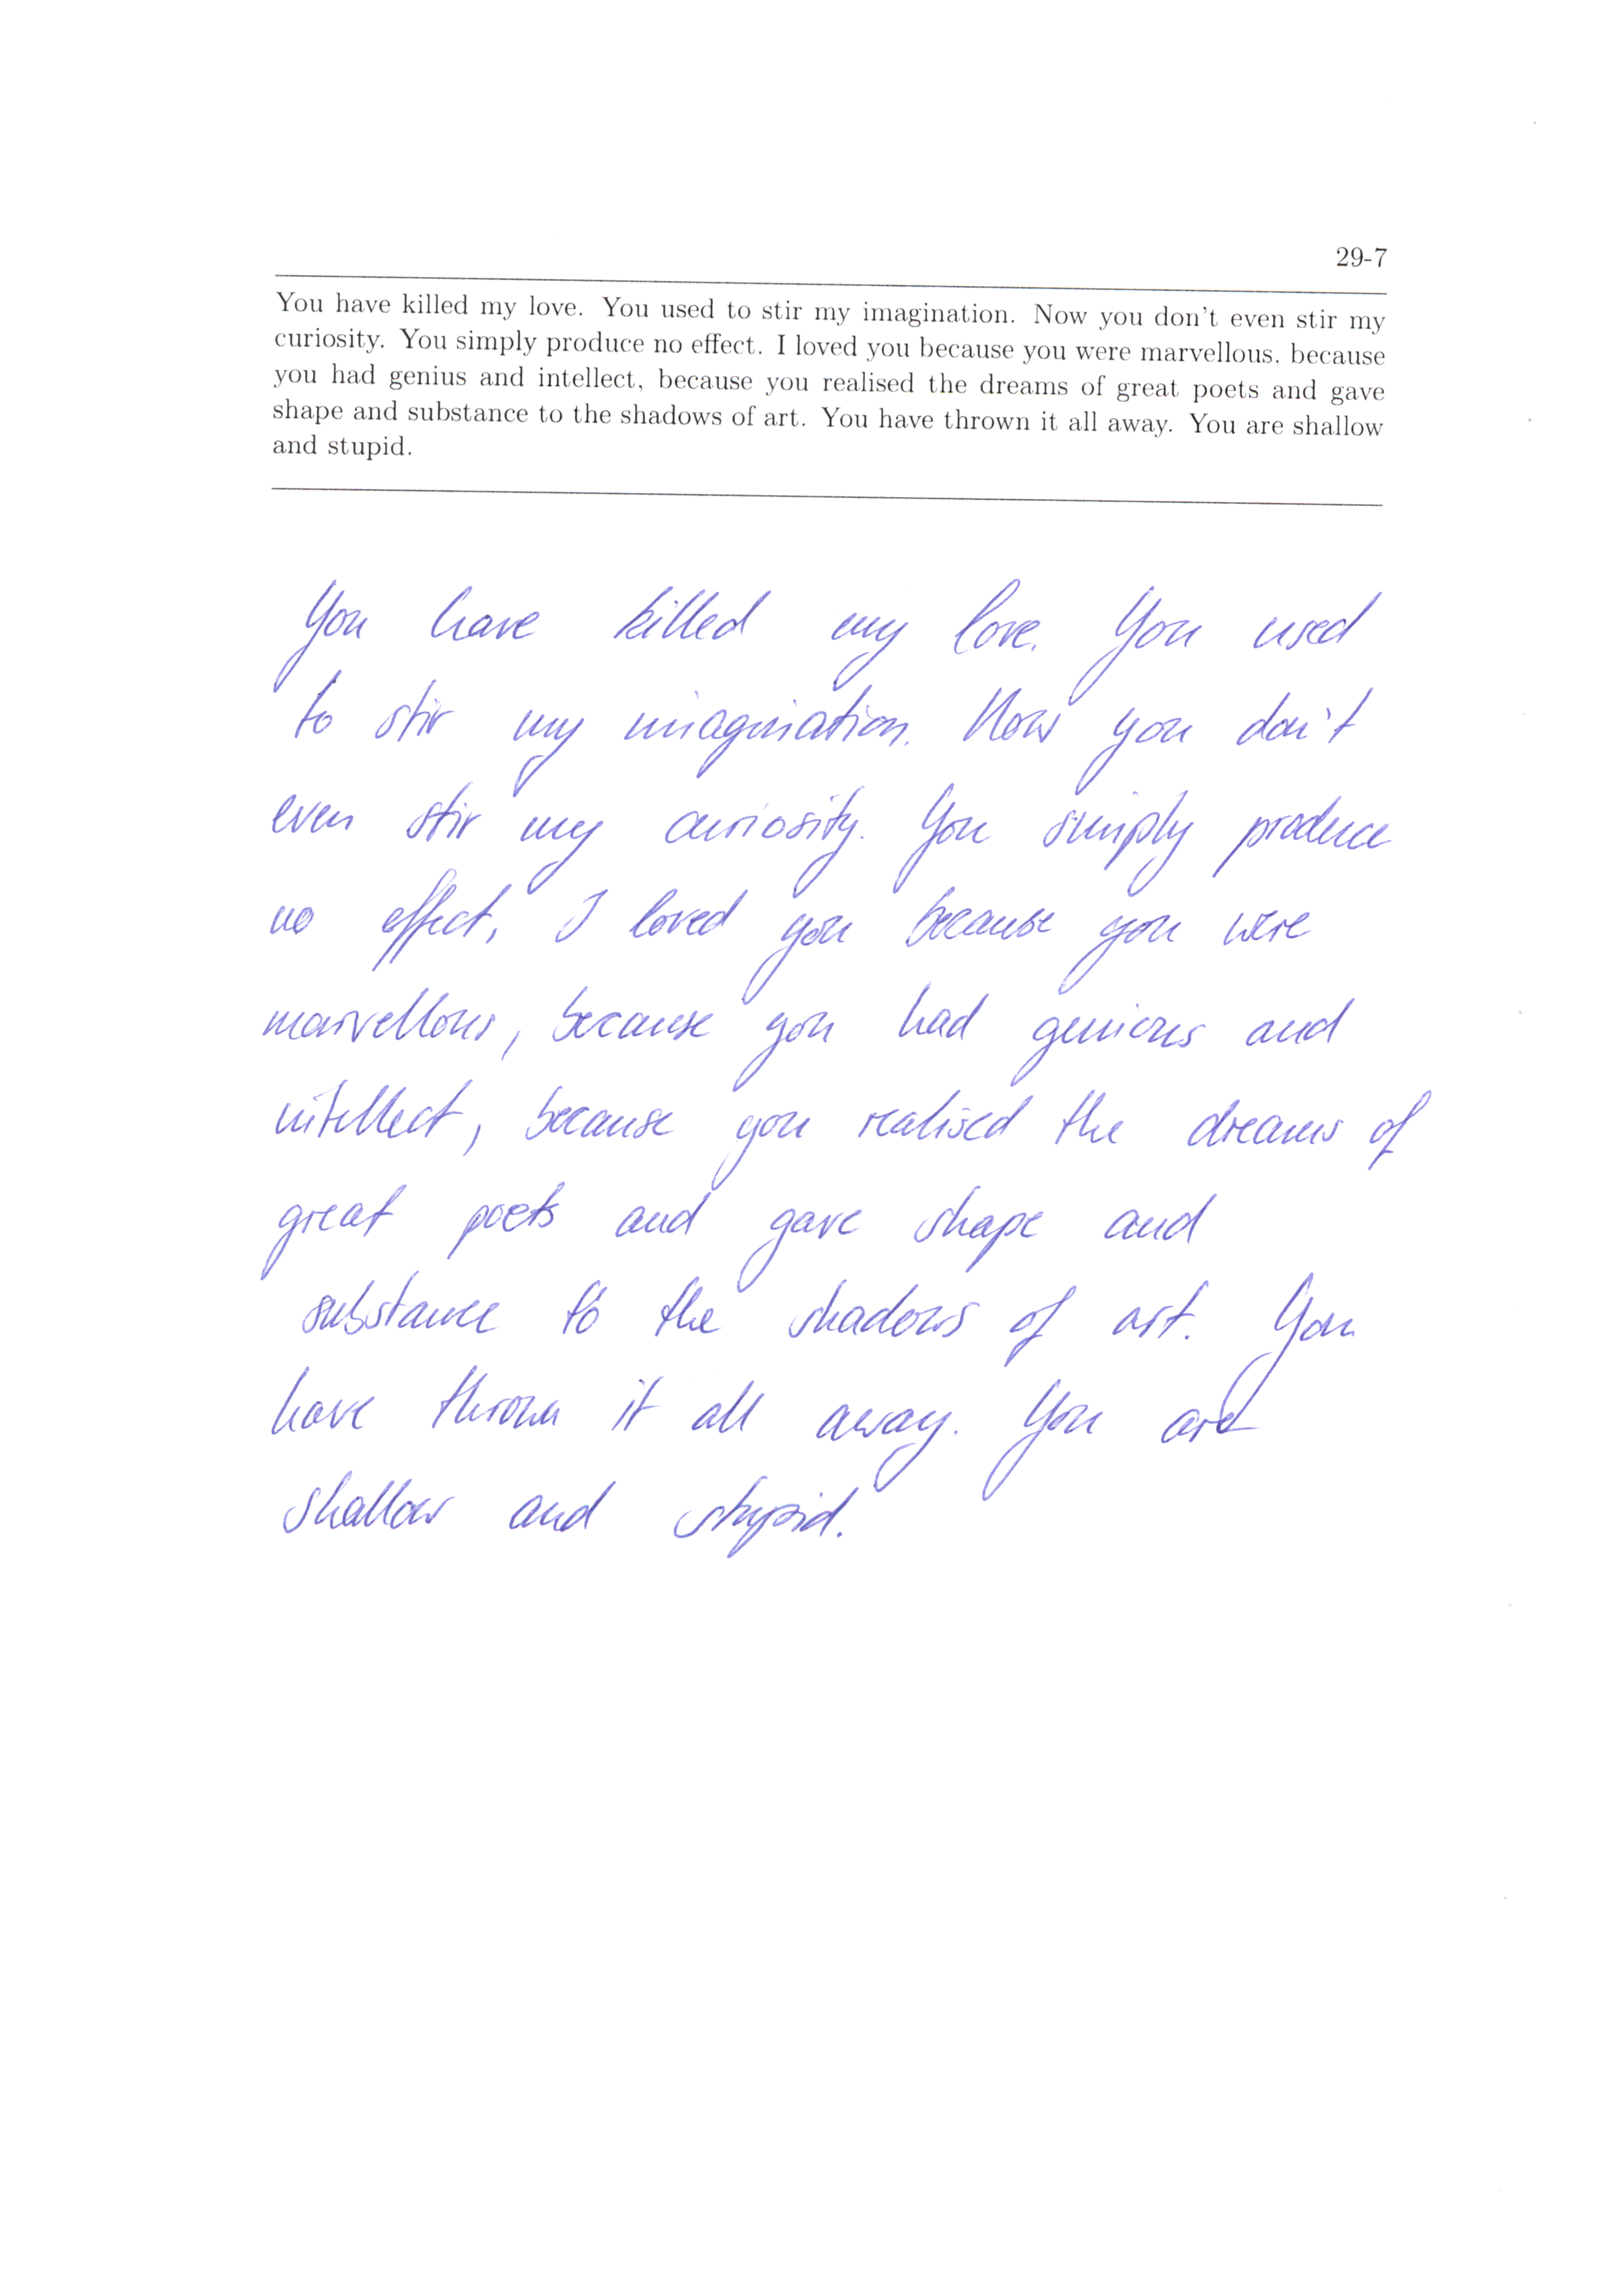 29-7
You have killed my love. You used to stir my imagination. Now you don't even stir my
curiosity. You simply produce no effect. I loved you because you were marvellous, because
you had genius and intellect, because you realised the dreams of great poets and gave
shape and substance to the shadows of art. You have thrown it all away. You are shallow
and stupid.
You have killed my love. You used
to stir my imagination. Now you don't
even stir my curiosity. You simply produce
no effect, I loved you because you were
marvellous, because you had genious and
intellect, because you realised the dreams of
great poets and gave shape and
substance to the shadows of art. You
have thrown it all away. You are
shallow and stupid.